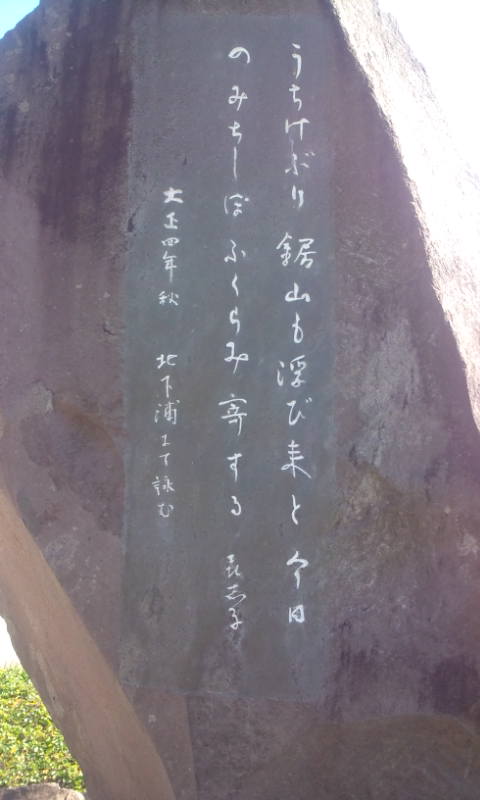 うちけぶり鋸山も浮び来と今日
のみちしほふくらみ寄する 喜志子
大正四年秋 北下浦にて詠む